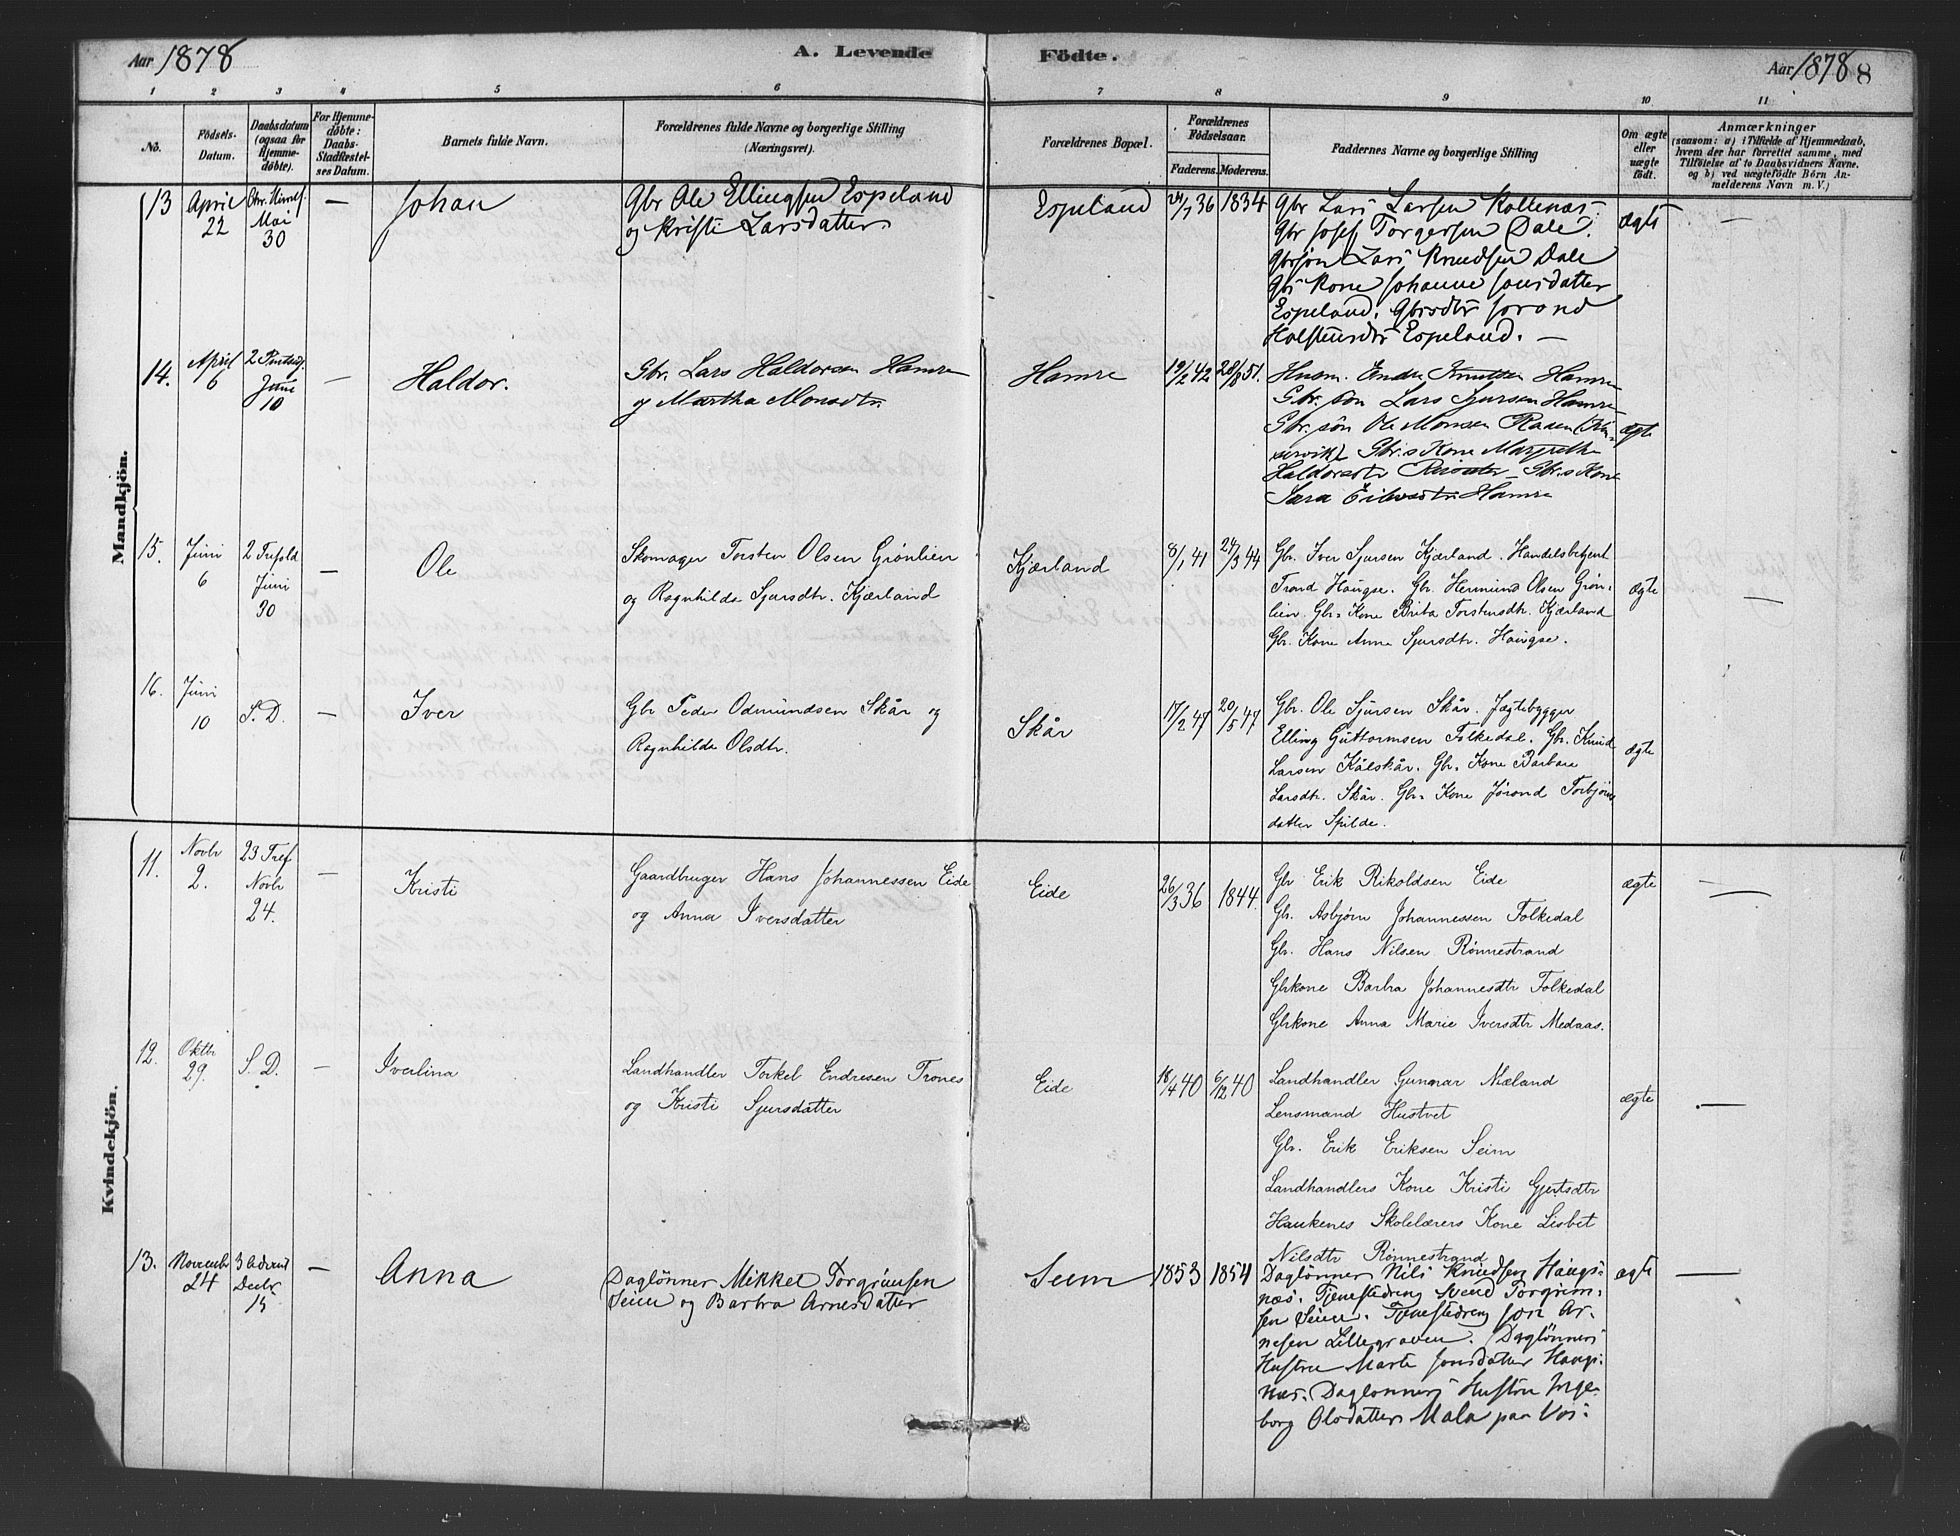 Aar 1878
A. Levende Födte.
Aar 1878 8
1 2 3 4 5 6 7 8 9 10 11
No.
Födsels-
Datum.
Daabsdatum
(ogsaa for
Hjemme-
döbte).
For Hjemme-
döbte:
Daabs-
Stadfæstel-
ses Datum.
Barnets fulde Navn.
Forældrenes fulde Navne og borgerlige Stilling
(Næringsvei).
Forældrenes Bopæl.
Forældrenes
Födselsaar.
Faderens. Moderens.
Faddernes Navne og borgerlige Stilling
Om ægte
eller
uægte
født.
Anmærkninger
(saasom: a) i Tilfælde af Hjemmedaab,
hvem der har forrettet samme, med
Tilföielse af to Daabsvidners Navne,
og b) ved uægtefödte Börn An-
melderens Navn m.V.)
Mandkjön.
13
April
22
Chr. Himelf.
Mai
30
—
Johan
Gbr Ole Ellingsen Espeland
og Kristi Larsdatter
Espeland
24/7 36
1834
Gbr Lars Larsen Kollenæs.
Gbr Josef Torgersen Dale.
Gbrsøn Lars Knudsen Dale
Gbs Kone Johanne Jonsdatter
Espeland. Gbrsdtr Jorand
Halsteinsdtr Espeland. —
ægte
—
14.
April
6
2 Pintsedg.
Juni
10
—
Haldor.
Gbr. Lars Haldorsen Hamre
og Martha Monsdtr.
Hamre
19/2 42
28/8 51.
Husm. Endre Knutsen Hamre
Gbr. søn Lars Sjursen Hamre
Gbr. søn Ole Monsen
Gbr.s Kone Margrethe
Haldorsdtr Gbr.s Kone
Sara Hamre
ægte
15.
Juni
6
2 Trefold
Juni
30
—
Ole
Skomager Torsten Olsen Grönlien
og Ragnhilda Sjursdtr. Kjærland
Kjærland
8/1 41
24/3 44
Gbr. Iver Sjursen Kjærland. Handelsbetjent
Trond Haugse. Gbr. Hermund Olsen Grön-
lien. Gbr. Kone Brita Torstensdtr. Kjærland
Gbr. Kone Anna Sjursdtr. Haugse.
ægte
—
16.
Juni
10
S.D.
—
Iver
Gbr Peder Odmundsen Skår og
Ragnhilda Olsdtr.
Skår
17/2 47
20/5 47
Gbr. Ole Sjursen Skår. Jagtebygger
Elling Guttormsen Folkedal. Gbr. Knud
Larsen Kålskår. Gbr. Kone Barbara
Larsdtr. Skår. Gbr. Kone Jörond Torbjöns
datter Spilde.
ægte
Kvindekjön.
11.
Novbr
2.
23 Tref
Novbr
24.
—
Kristi
Gaardbruger Hans Johannessen Eide
og Anna Iversdatter
Eide
26/3 36
1844.
Gbr Erik Rikoldsen Eide
Gbr. Asbjörn Johannessen Folkedal
Gbr. Hans Nilsen Rönnestrand
Gbrkone Barbra Johannesdtr Folkedal
Gbrkone Anna Marie Iversdtr Medaas.
ægte
—
12.
Oktbr
29.
S.D.
—
Iverlina
Landhandler Torkel Endresen Trones
og Kristi Sjursdatter
Eide
18/4 40
6/12 40
Landhandler Gunnar Næland
Lensmand Hustvet
Gbr. Erik Eriksen Seim
Landhandlers Kone Kristi Gjertsdtr
Haukenes Skolelærers Kone Lisbet
Nilsdtr Rönnestrand
ægte
—
13.
Novembr
24
3 Advent
Decbr
15
—
Anna
Daglønner Mikkel Torgrimsen
Seim og Barbra Arnesdatter
Seim
1853
1854
Daglønner Nils Knudsen Haugs-
næs. Tjenestedreng Svend Torgrim-
sen Seim. Tjenestedreng Jon Ar-
nesen Lillegraven. Daglønners
Hustru Marta Jonsdatter Haugs-
næs. Daglønners Hustru Inge-
borg Olsdatter Mala paa Vos.
ægte
—